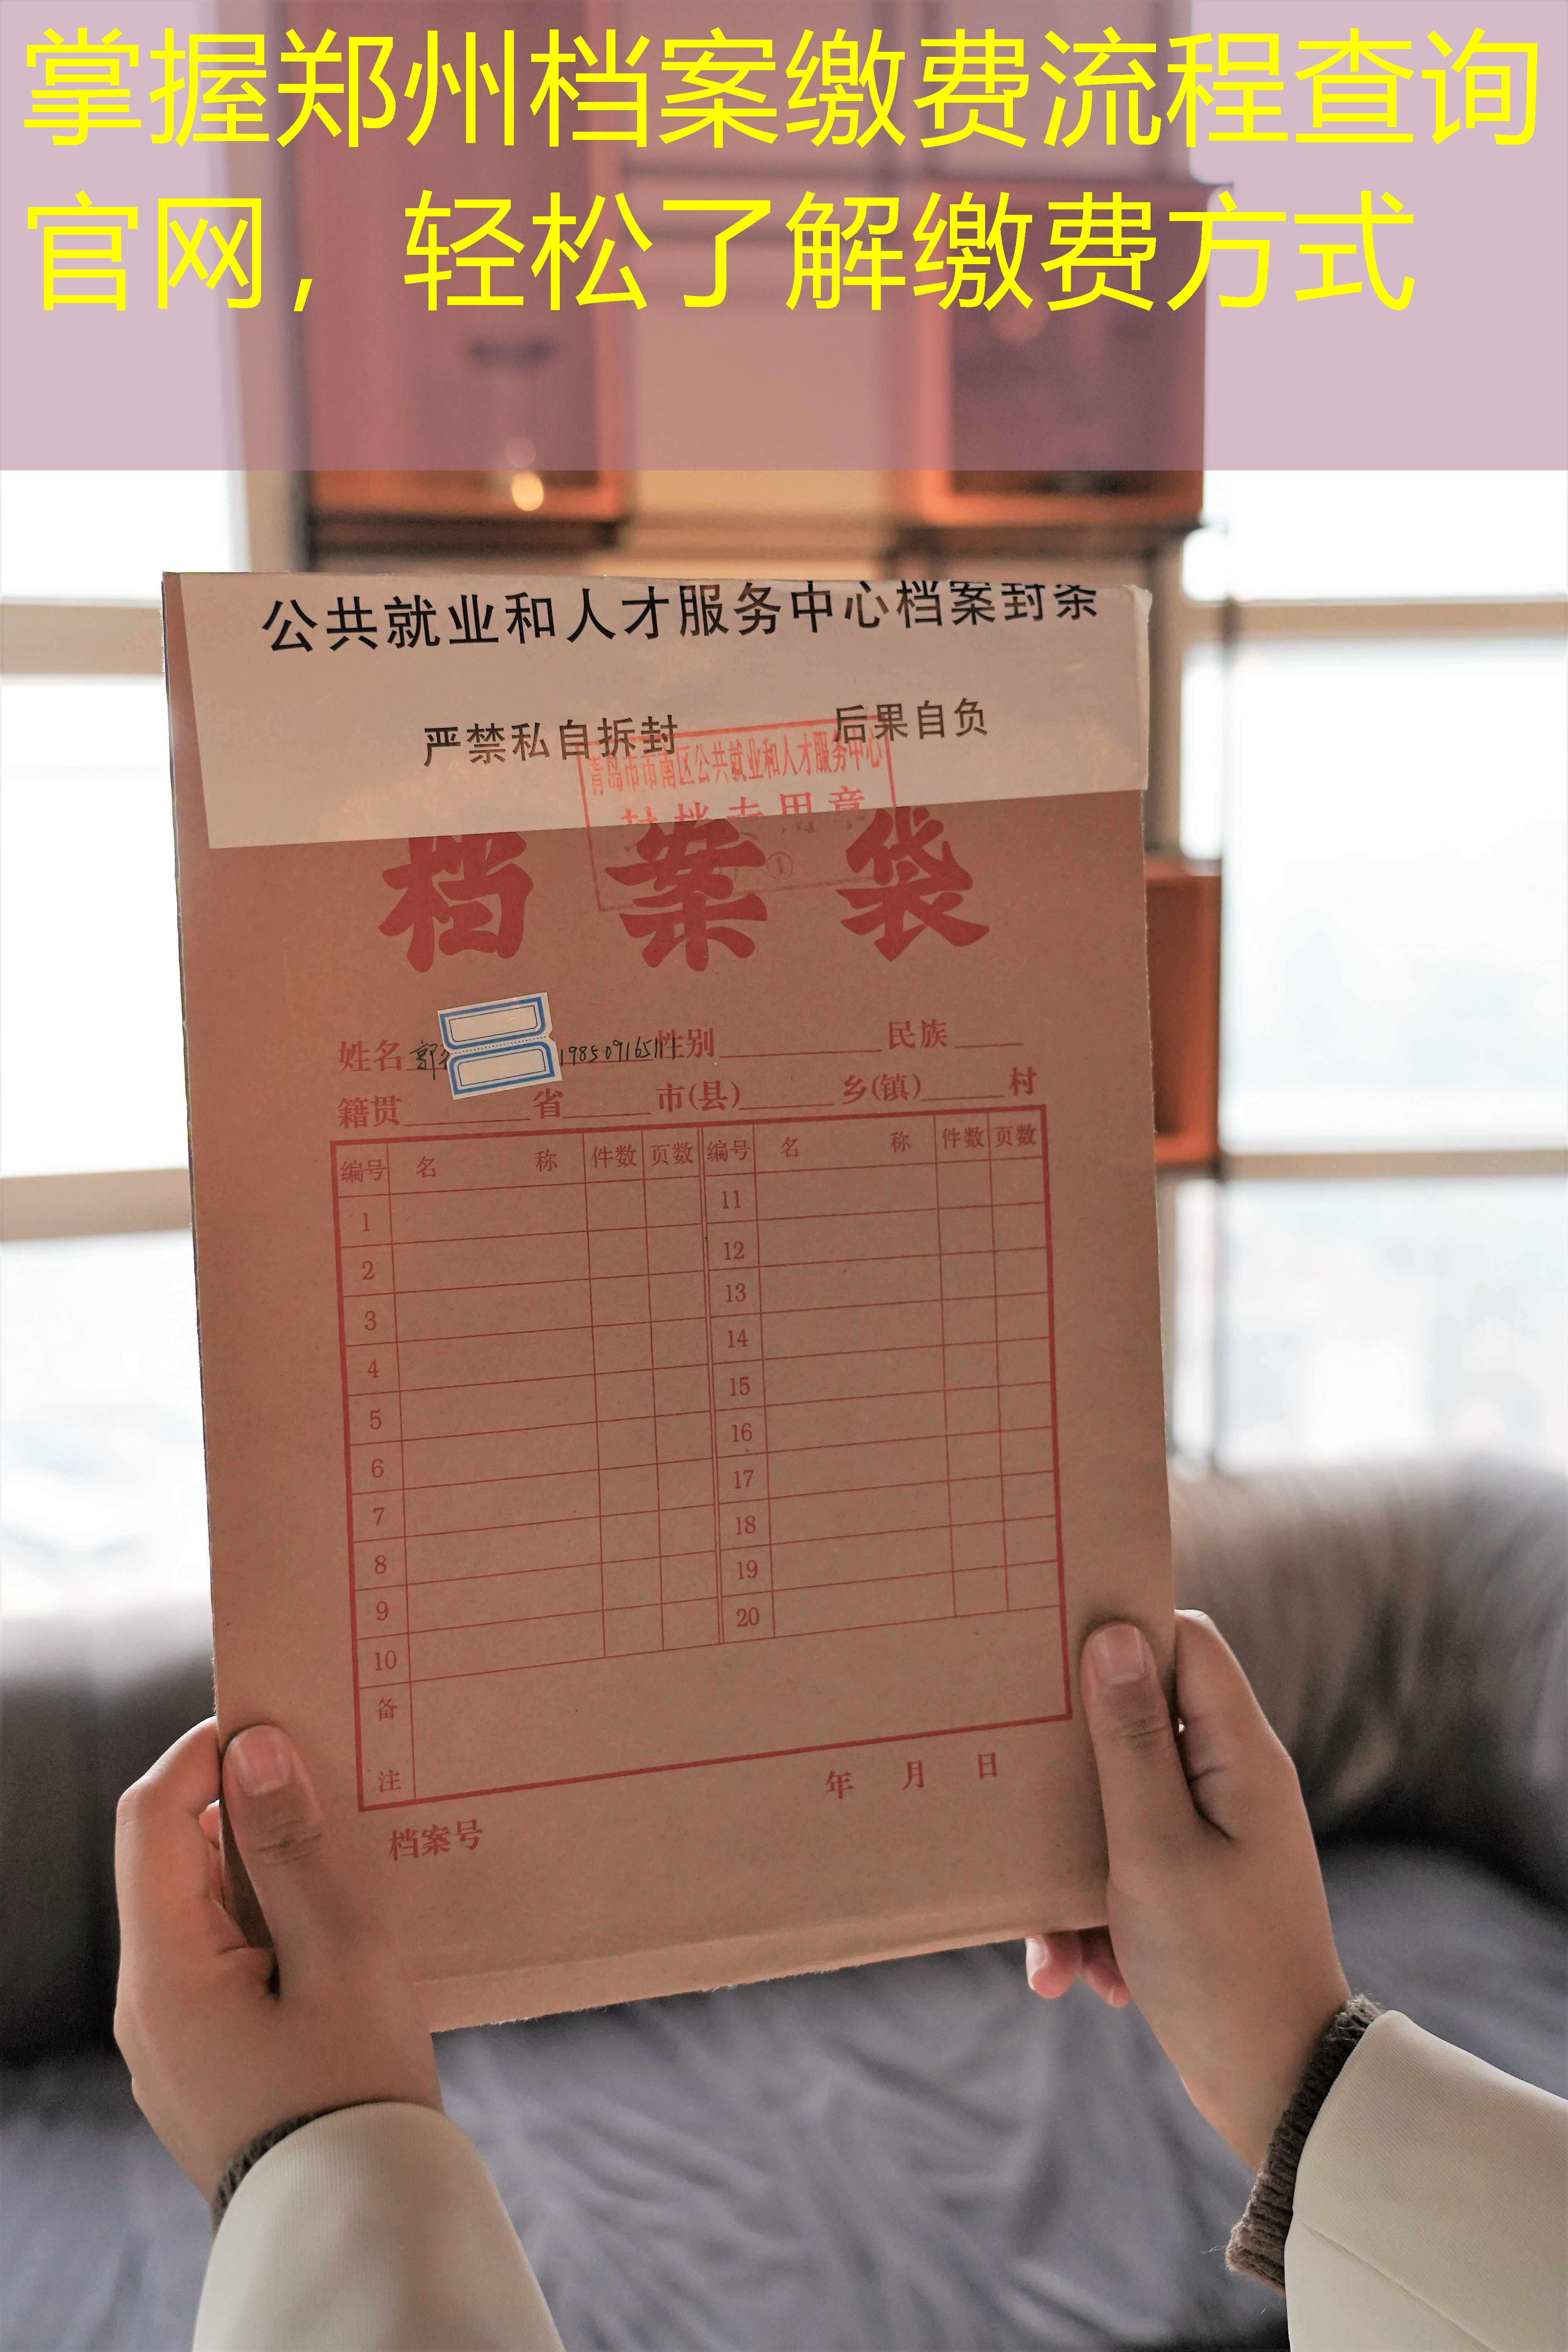 掌握郑州档案缴费流程查询
官网，轻松了解缴费方式
公共就业和人才服务中心档案封条
严禁私自拆封 后果自负
青岛市市南区公共就业和人才服务中心
封档专用章
档案袋
姓名 郭 1985091651 性别 民族
籍贯 省 市(县) 乡(镇) 村
编号 名称 件数 页数 编号 名称 件数 页数
1 11
2 12
3 13
4 14
5 15
6 16
7 17
8 18
9 19
10 20
备注
年 月 日
档案号